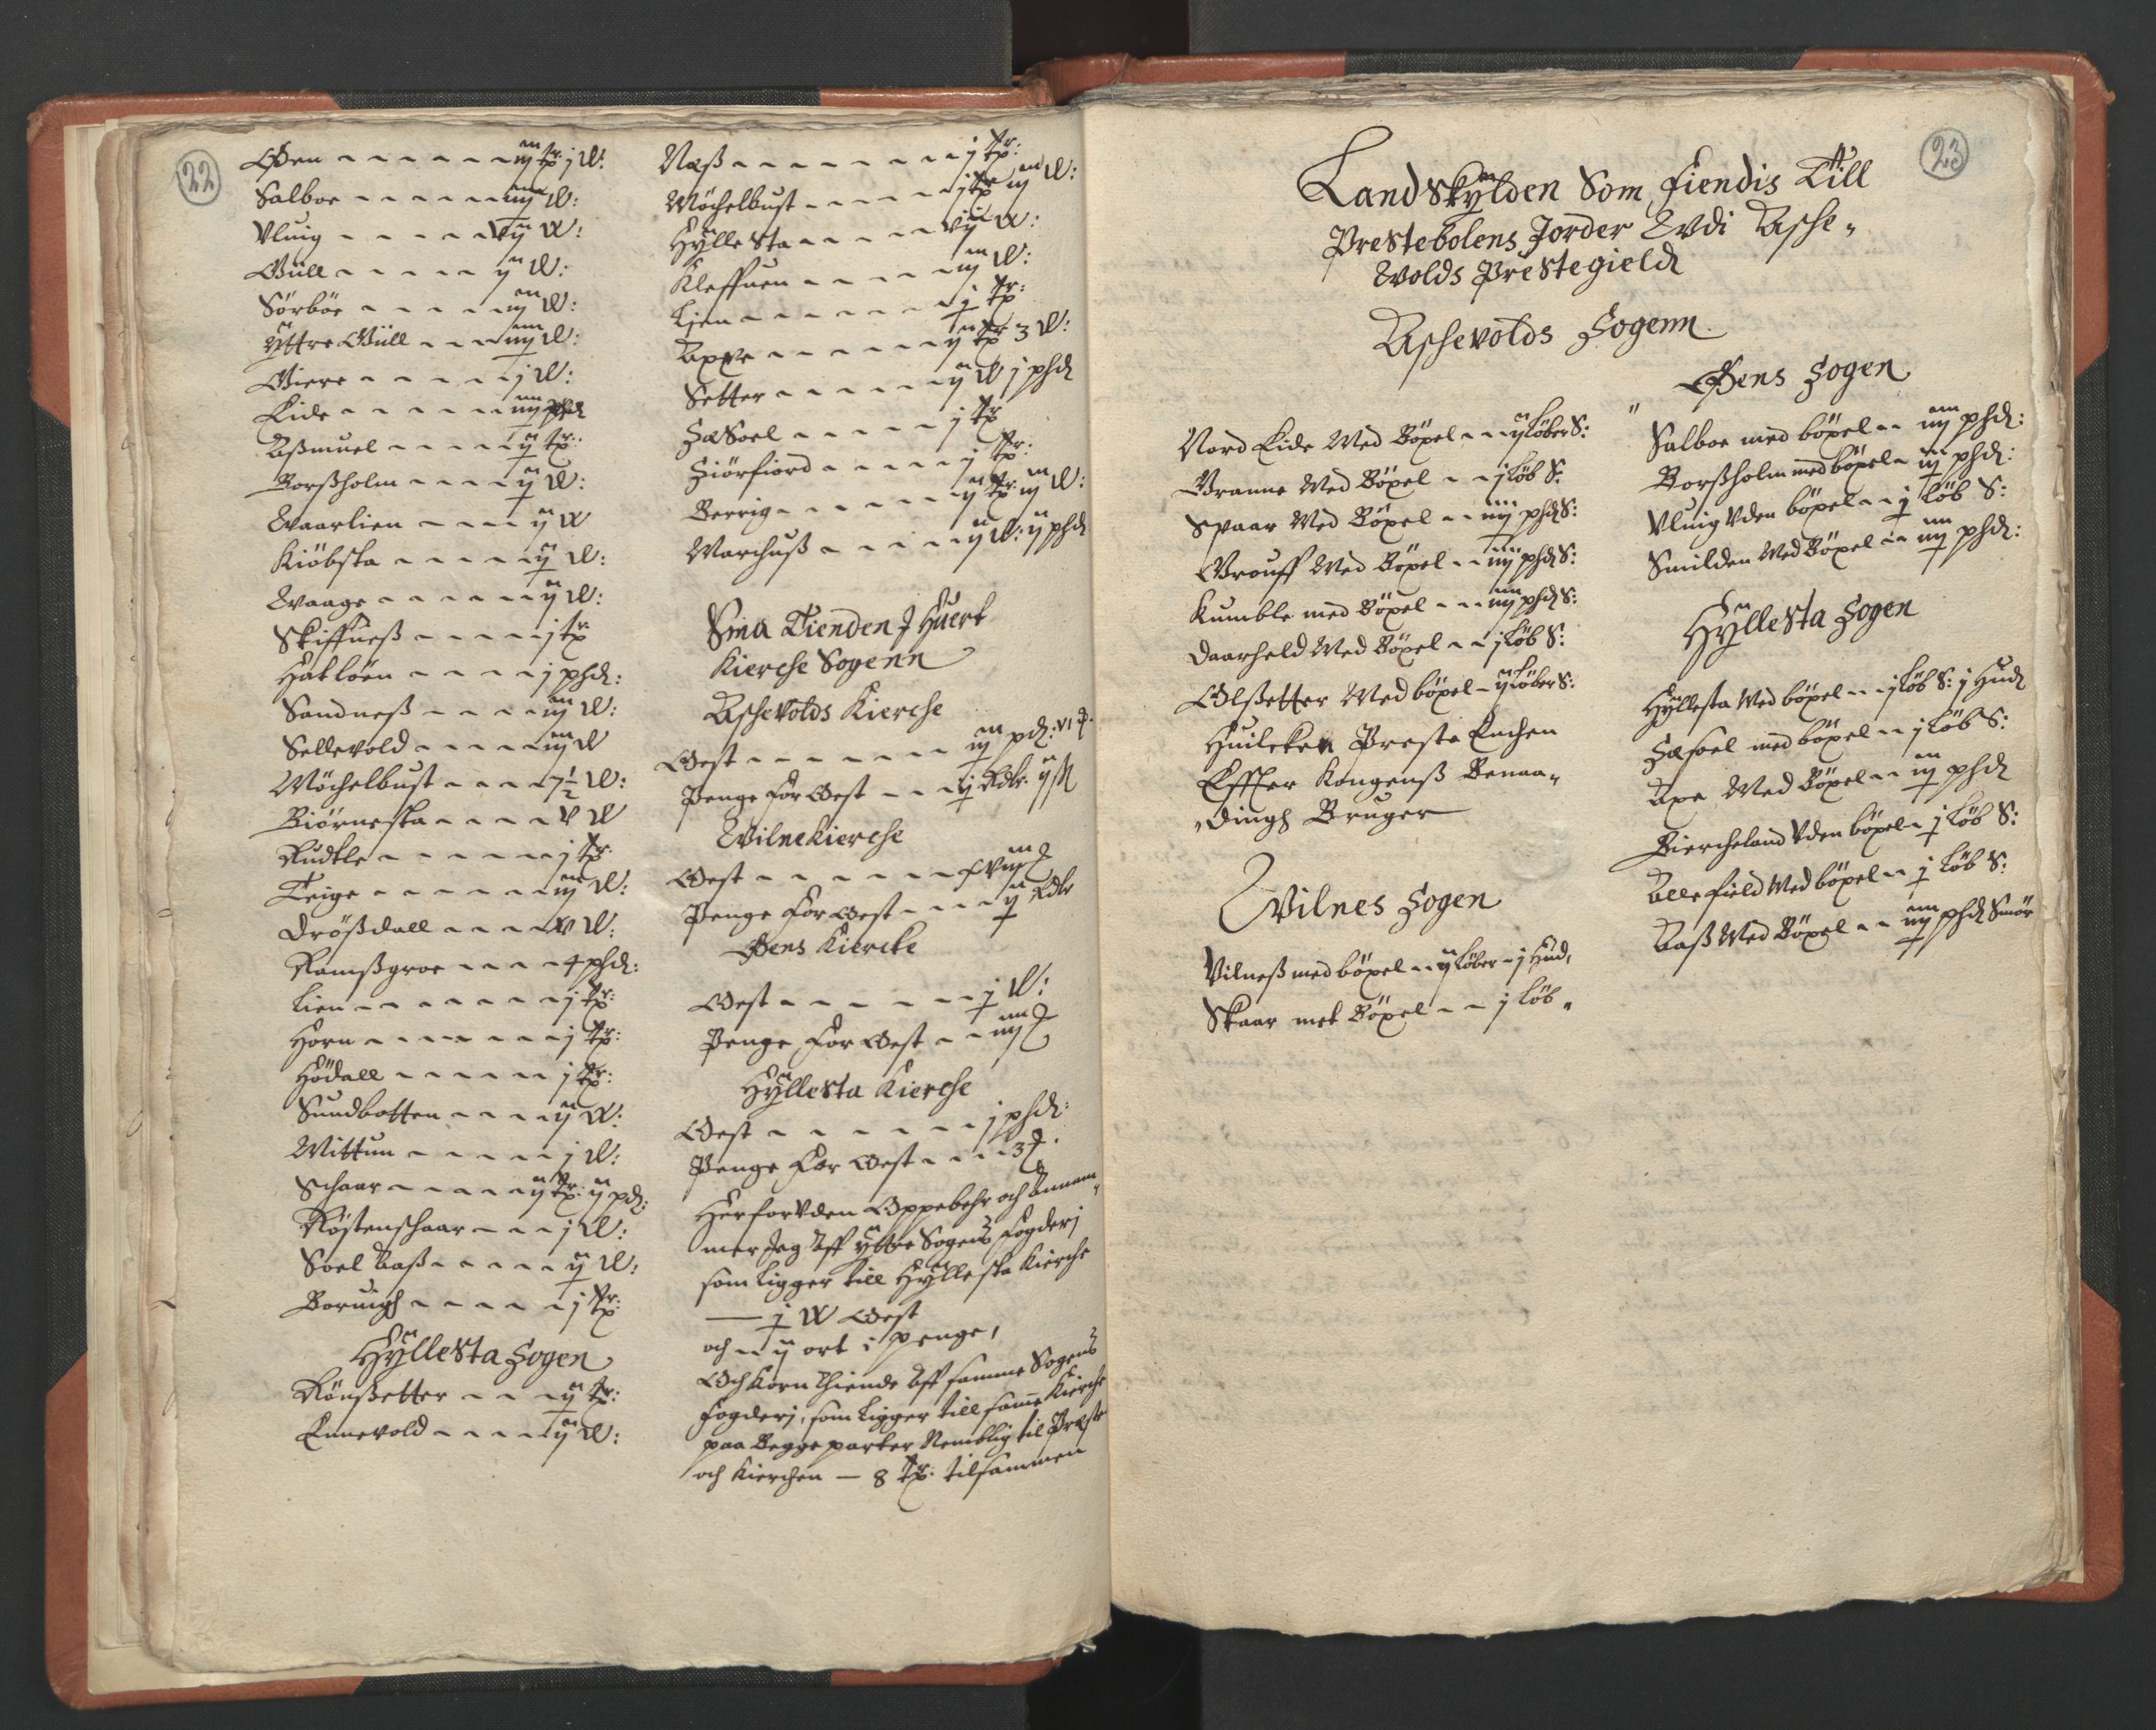 22
Øen - - - - - - iij tr: j W:
Salboe - - - - - iiij W:
Vluig - - - - - vij W:
Güll - - - - - ij W:
Sörböe - - - - - iij W:
Yttre Güll - - - iiij W:
Giere - - - - - j W:
Eide - - - - - - iiij phd
Aaßmuel - - - - ij tr:
Borßholm - - - - ij W:
Waarlien - - - - ij W
Kiöbsta - - - - - ij W:
Waage - - - - - - ij W:
Skiffneß - - - - - j tr
Hatlöen - - - - j phd:
Sandneß - - - - - iij W:
Sellevold - - - - - iij W
Möchelbust - - - - 7½ W:
Biörnesta - - - - v W
Rudtle - - - - - - j tr
Teige - - - - - - iij W:
Drößdall - - - - xv W:
Ramßgroe - - - - 4 phd:
Lien - - - - - - - j tr:
Horn - - - - - - - j tr:
Hödall - - - - - - j tr:
Sundbotten - - - - ij W:
Mittun - - - - - j W:
Schaar - - - - - ij tr: ij pd:
Röstenschaar - - - j W:
Soel Aaß - - - - - ij W:
Boruigh - - - - - j tr:
Hÿllesta Sogen
Rönßetter - - - - ij tr:
Ennevold - - - - - ij W:
Næß - - - - - - - - j tr:
Möchelbust - - - - j tr iij W:
Hÿllesta - - - - - vij W:
Kleffuen - - - - - iij W:
Lien - - - - - - - j tr:
Axxe - - - - - - ij tr 3 W:
Setter - - - - - - ij W j phd
Sæsoel - - - - - j tr
Siörfiord - - - - - j tr:
Berrig - - - - - - ij tr iij W:
Warhuß - - - - - ij W: ij phd
Sma Tienden J Huert
Kierche Sogenn
Aschevolds Kierche
Oest - - - - - - - iij pd: vi
Penge for Oest - - - ij Rdlr. ij ß
Wilnekierche
Oest - - - - - - xviij
Penge for Oest - - - - ij Rdlr
Øens Kiercke
Oest - - - - - - - j W:
Penge for Oest - - - iiij
Hÿllesta Kierche
Oest - - - - - - - j phd:
Penge for Oest - - - - 3
Herforvden Oppebehr och Annam-
mer Jeg Aff Yttre Sogens Fogderj
som ligger till Hÿllesta Kierche
— j W Oest
och - - ij ort i penge,
Och Korn thiende Aff samme Sogens
Fogderj, som ligger till same Kierche
paa Begge parter Nemblig til Præste
och Kierchen — 8 tr: tilsammen
23
Landskÿlden Som Fiendis Till
Prestebolens Jorder Wdi Asche-
wolds Prestegield
Aschevolds Sogenn
Nord Eide Med Böxel - - ij löber S:
Granne Med Böxel - - j löb S:
Spaar Med Böxel - - iiij phd S:
Grouff Med Böxel - - iiij phd S:
Kumble med Böxel - - - iiij phd S:
Daarheld Med Böxel - - j löb S:
Olßetter Med böxel - ij löber S:
Huilcken Preste Enchen
Effter Kongenß Benaa-
dingh Bruger
Wilnes Sogen
Vilneß med böxel - - ij löber - j Hud,
Skaar met Böxel - - j löb -
Øens Sogen
Salboe med böxel - - iiij phd:
Borßholm med böxel - iij phd:
Vluig Vden böxel - - j löb S:
Smilden Med Böxel - - iiij phd:
Hÿllesta Sogen
Hÿllesta Med böxel - - j löb S: j Hud
Sæsoel med böxel - - j löb S:
Axe Med Böxel - - iij phd
Biercheland Vden böxel - j löb S:
Allefield Med böxel - - j löb S:
Aaß Med Böxel - - iiij phd Smör